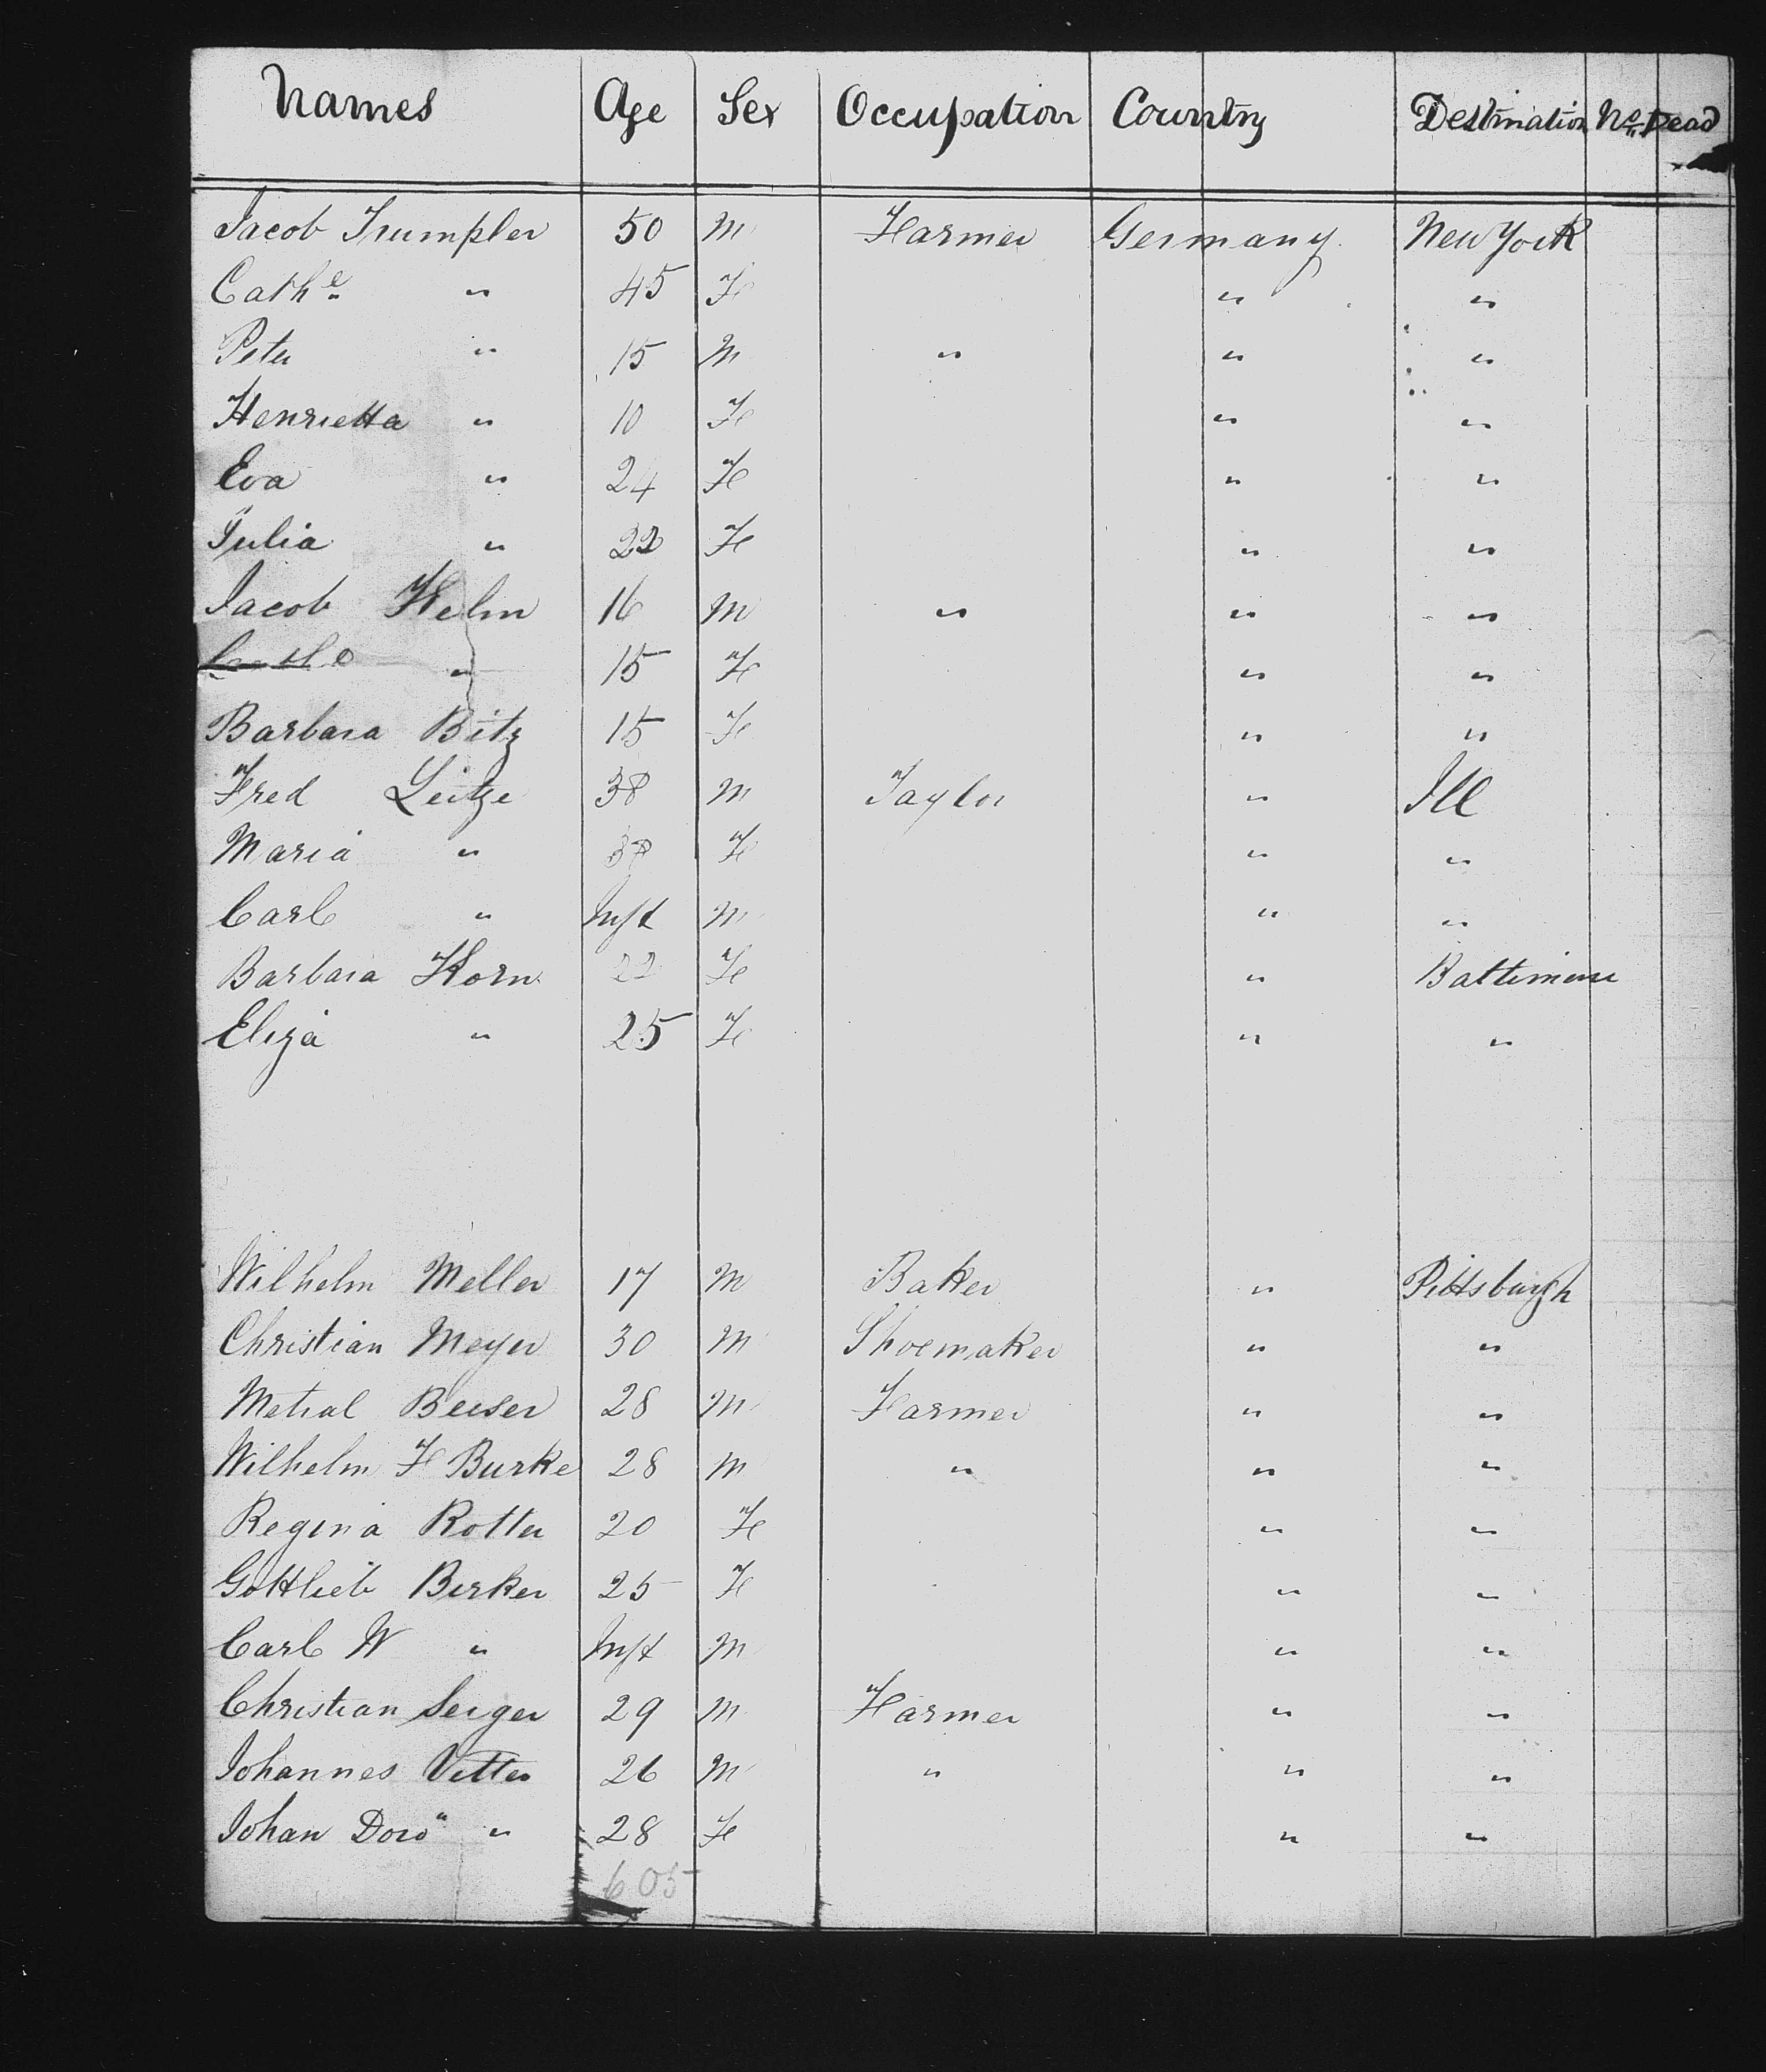 Names Age Sex Occupation Country Destination No. Dead
Jacob Trumpler 50 M Farmer Germany New York
Cathe " 45 F " "
Peter " 15 M " " "
Henrietta " 10 F " "
Eva " 24 F " "
Julia " 22 F " "
Jacob Helm 16 M " " "
" 15 F " "
Barbara Bitz 15 F " "
Fred Leitze 38 M Taylor " Ill
Maria " F " "
Carl " Inft M " "
Barbara Korn 22 F " Baltimore
Eliza " 25 F " "
Wilhelm Meller 17 M Baker " Pittsburgh
Christian Meyer 30 M Shoemaker " "
Beeser 28 M Farmer " "
Wilhelm F Burke 28 M " " "
Regina Rotter 20 F " "
Gottlieb Berker 25 F " "
Carl W " Inft M " "
Christian Seiger 29 M Farmer " "
Johannes Vetter 26 M " " "
Johan Doro" " 28 F " "
605